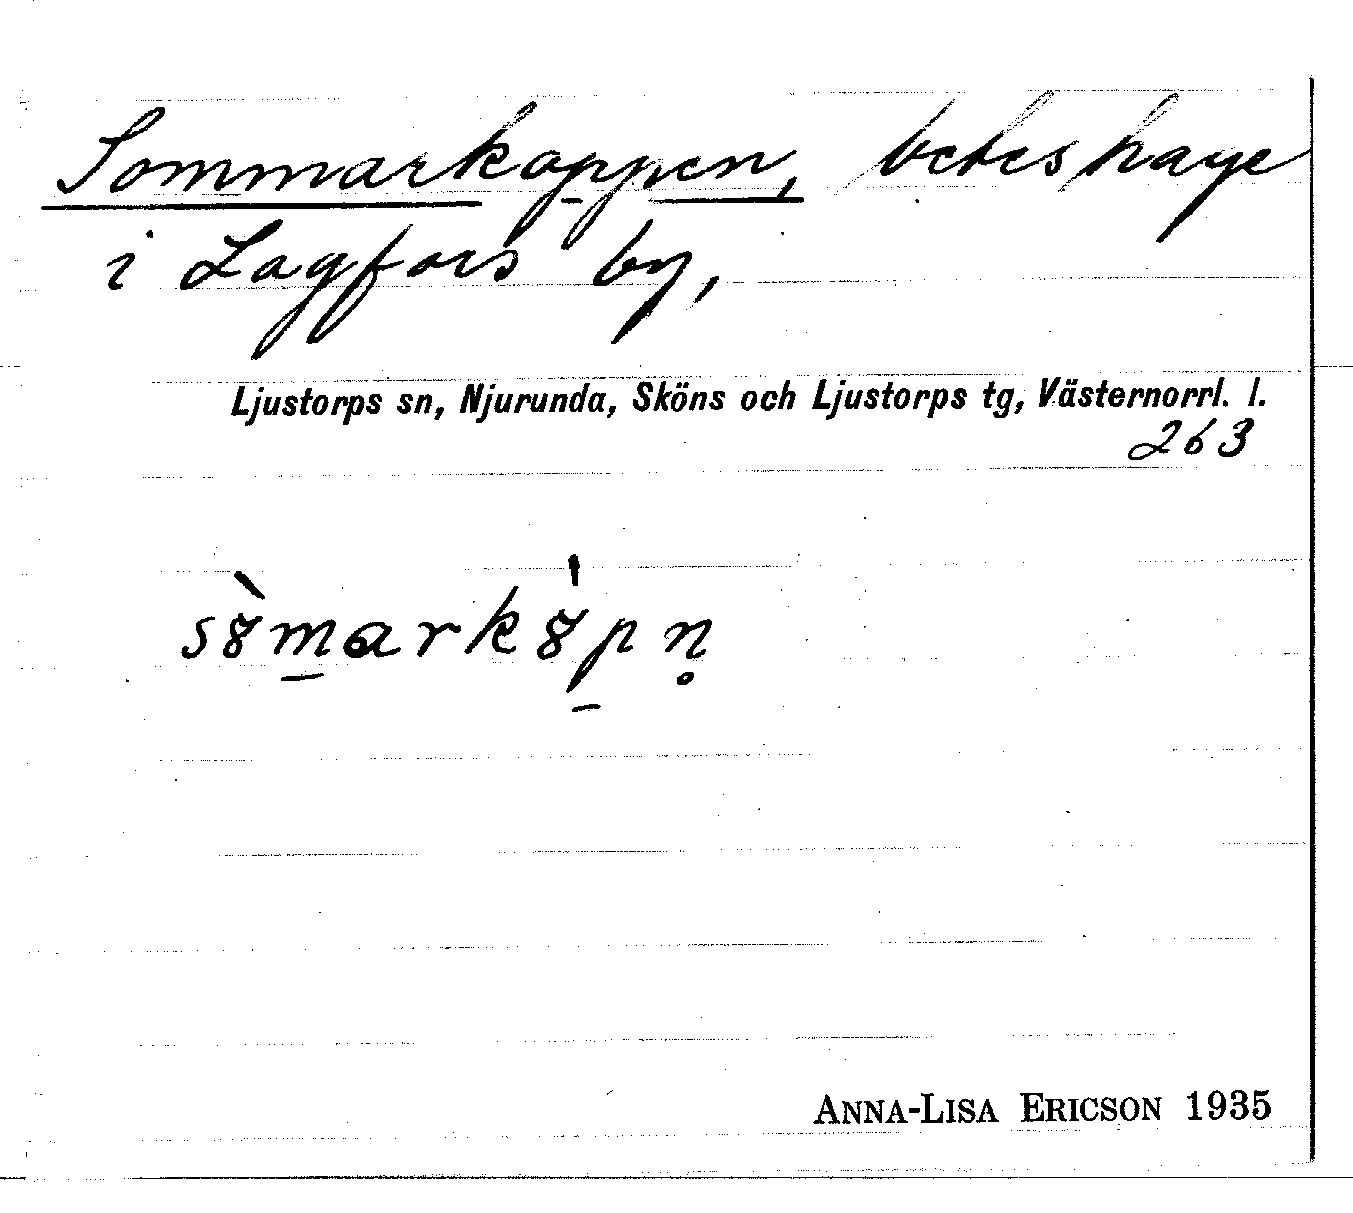 Sommarkoppen, beteshage
i Lagfors by,
Ljustorps sn, Njurunda, Sköns och Ljustorps tg, Västernorrl. l.
263
s8̀m̱ark8̍p̱n̥
ANNA-LISA ERICSON 1935